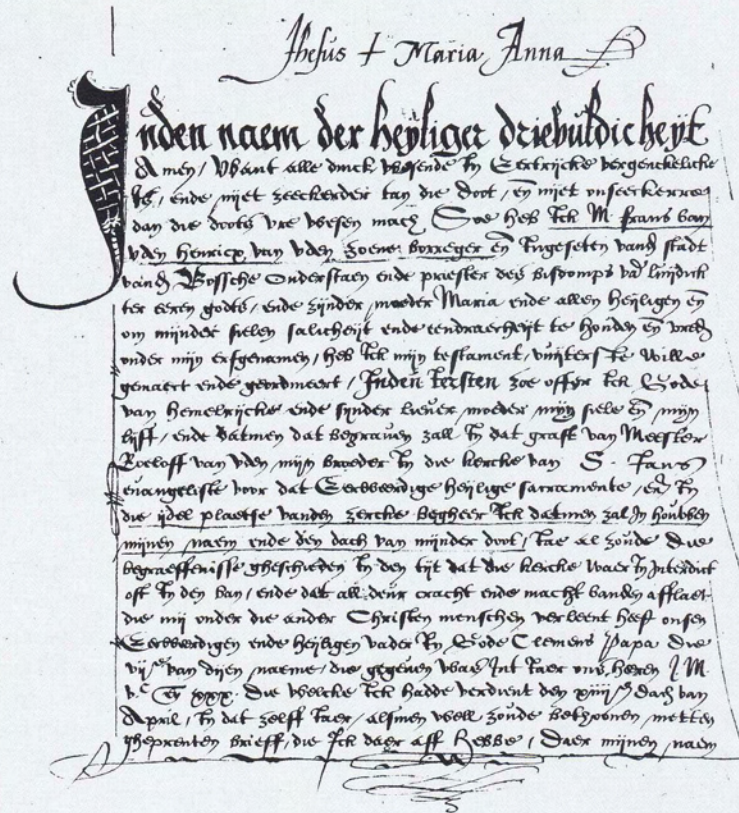 Jhesus + Maria Anna
Inden naem der heyliger drievuldicheyt
Amen / Want alle dinck wesende In Eertrijcke vergenckelicke
Is, ende niet zeeckerder dan die doot, en niet onseeckerre
dan die doots vre wesen mach Soe heb Ick M. frans van
vden henricx van vden zoene borreger en Ingeseten vand stadt
vand Bossche Onderstaen ende priester des bisdomps va luijdick
ter eeren godts, ende zijnder moeder Maria ende allen heyligen en
om mijnder sielen salicheyt ende eendraecheyt te houden en vrede
onder mijn erfgenamen, heb Ick mijn testament, vuijterste wille
gemaect ende geordineert, Inden Iersten zoe offer Ick Gode
van hemelrijcke ende sijnder liever moeder mijn siele en mijn
lijff, ende datmen dat begraven zall In dat graft van Meester
Roeloff van vden mijn broeder In die kercke van S. Jans
evangeliste voor dat Eerweerdige heylige sacramente, en In
die ijdel plaetse vanden zercke begheer Ick datmen zal In houwen
mijnen naem ende den dach van mijnder doot, Iae al zoude die
begraeffenisse gheschieden In den tijt dat die kercke waer In Interdict
oft In den ban, ende dat all deur cracht ende macht vanden afflaet
die mij onder die ander Christen menschen verleent heeft onsen
Eerweerdigen ende heyligen vader In Gode Clemens Papa die
vij van dijen naeme, die gegeven was Int Iaer ons heren J. M.
v.c En xxx. die welcke Ick hadde verdient den xiiij dach van
April, In dat zelff Iaer, alsmen well zoude bethoonen metten
gheprenten brieff, die Ick daer aff hebbe, Daer mijnen naem